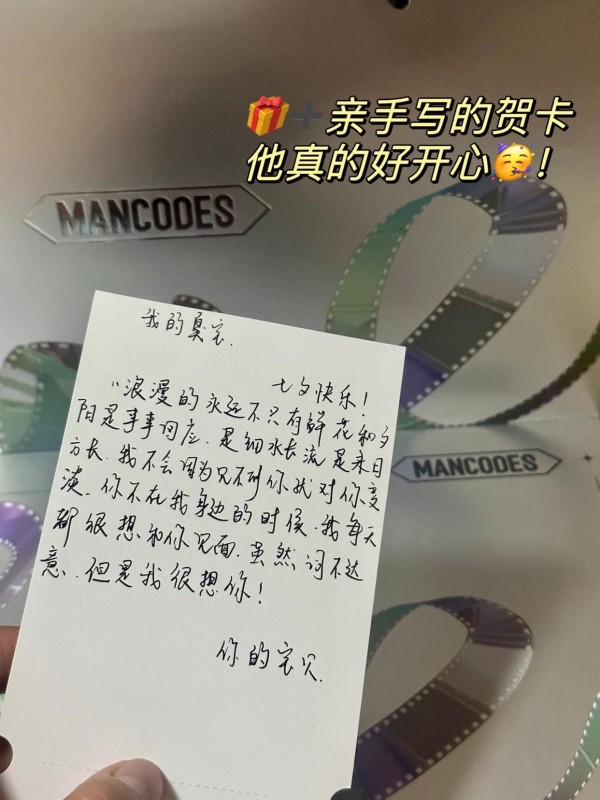 🎁➕亲手写的贺卡
他真的好开心🥳！
MANCODES
我的臭宝.
七夕快乐！
“浪漫的永远不只有鲜花和夕
阳是事事回应.是细水长流是来日
方长.我不会因为见不到你就对你变
淡.你不在我身边的时候.我每天
都很想和你见面.虽然词不达
意.但是我很想你！
你的宝贝.
MANCODES